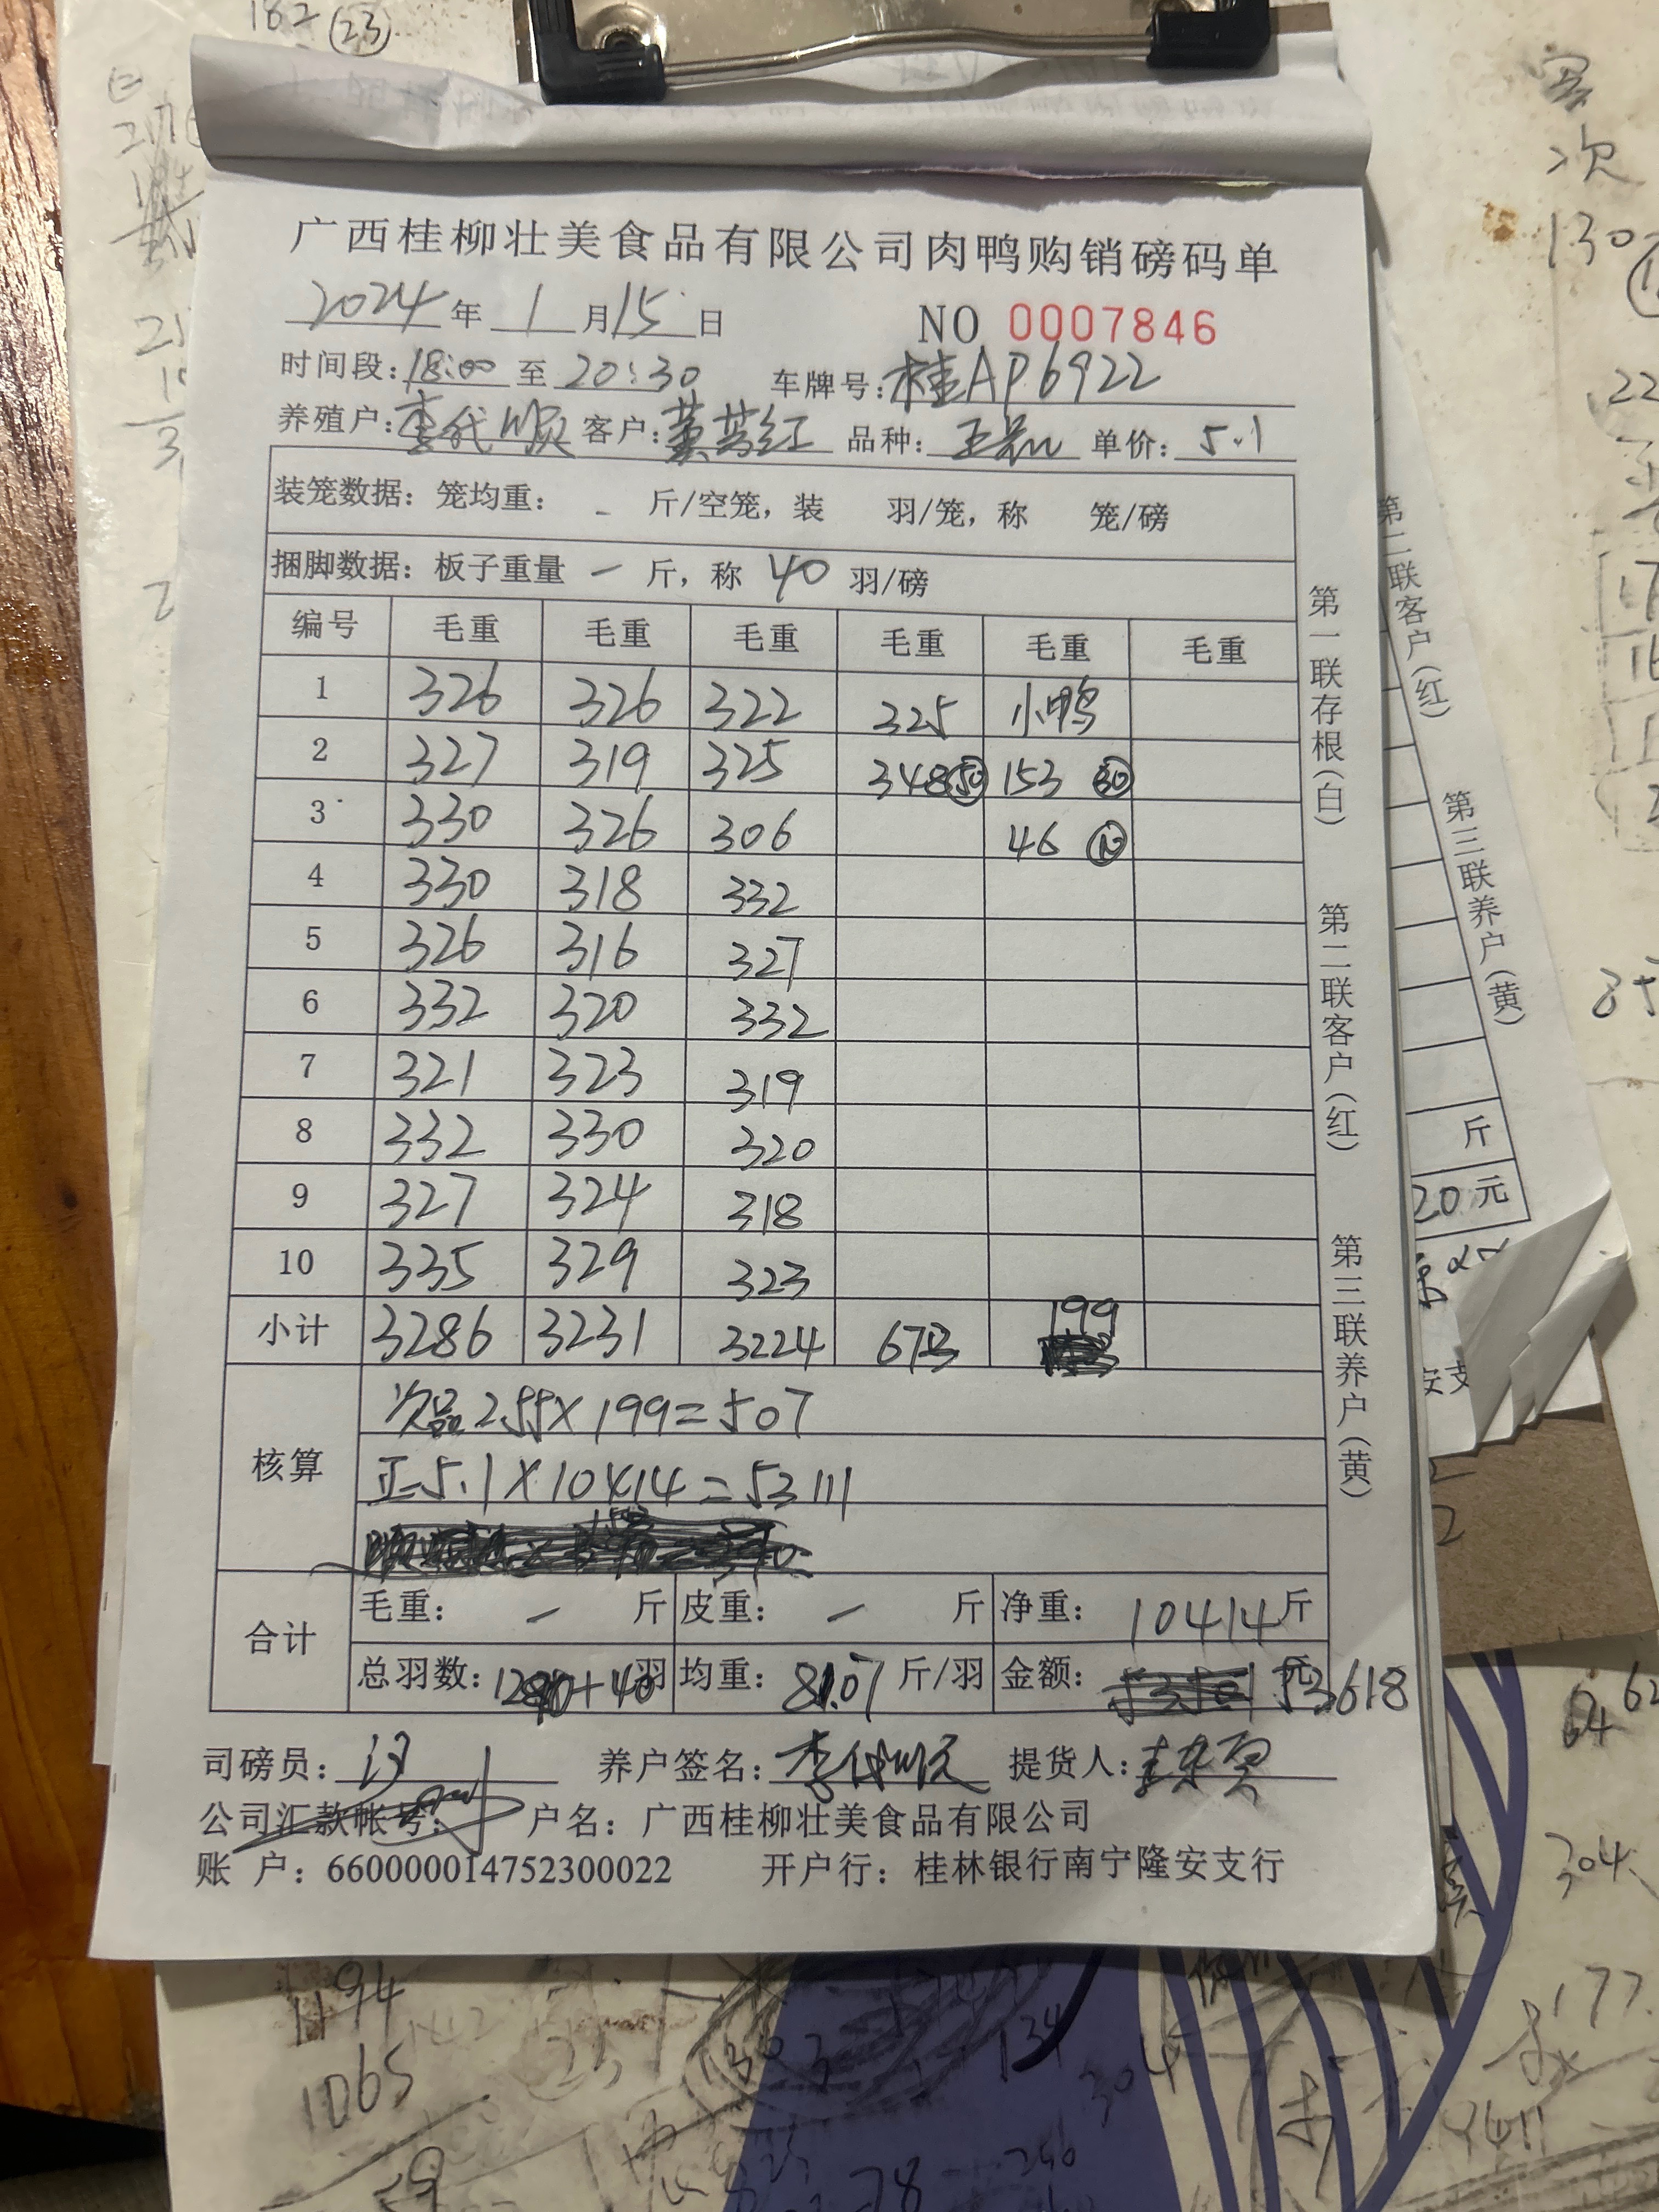 广西桂柳壮美食品有限公司肉鸭购销磅码单
2024年 1月15日 NO 0007846
时间段:18:00至20:30 车牌号:桂AP6922
养殖户:李代顺 客户: 品种: 单价:5.1
装笼数据:笼均重: - 斤/空笼,装 羽/笼,称 笼/磅
捆脚数据:板子重量 - 斤,称 40 羽/磅
编号 毛重 毛重 毛重 毛重 毛重 毛重
1 326 326 322 325 小鸭
2 327 319 325 348 50 153 30
3 330 326 306 46 10
4 330 318 332
5 326 316 327
6 332 320 332
7 321 323 319
8 332 330 320
9 327 324 318
10 335 329 323
小计 3286 3231 3224 673 199
核算
次品 2.55×199=507
正5.1×10414=53111
合计
毛重: - 斤 皮重: - 斤 净重: 10414斤
总羽数: 羽 均重: 斤/羽 金额: 53618元
司磅员: 养户签名:李代顺 提货人:
公司汇款帐号: 户名:广西桂柳壮美食品有限公司
账 户:660000014752300022 开户行:桂林银行南宁隆安支行
第一联存根(白)
第二联客户(红)
第三联养户(黄)
第二联客户(红)
第三联养户(黄)
斤
20元
安支
182 23
客
次
130
22
62
64
304
177
1194
1065
134
304